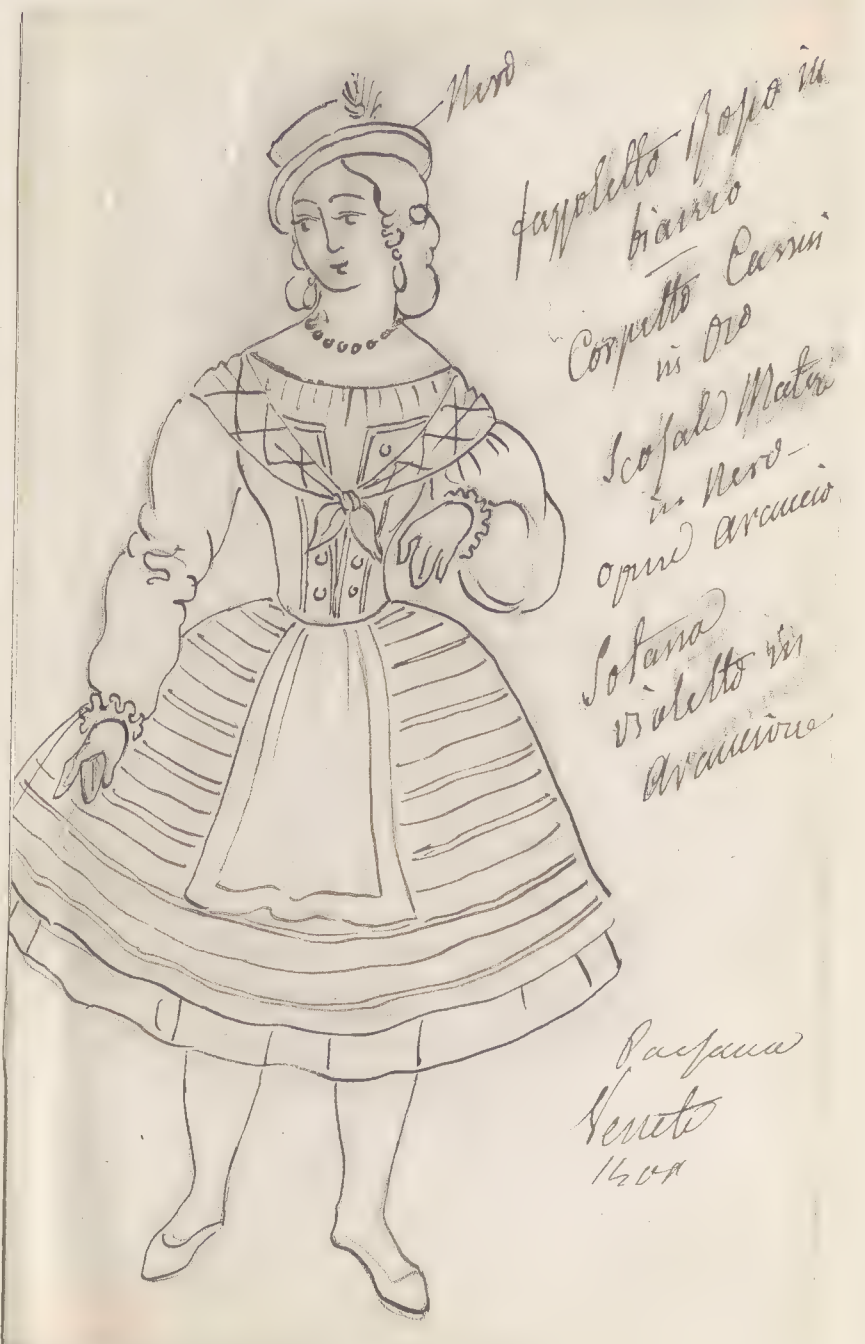 Nero
fazzoletto Rosso in
bianco
Corpetto
in Oro
Scossale
in Nero
opure arancio
Sotana
violetto in
Arancione
Paesana
Veneta